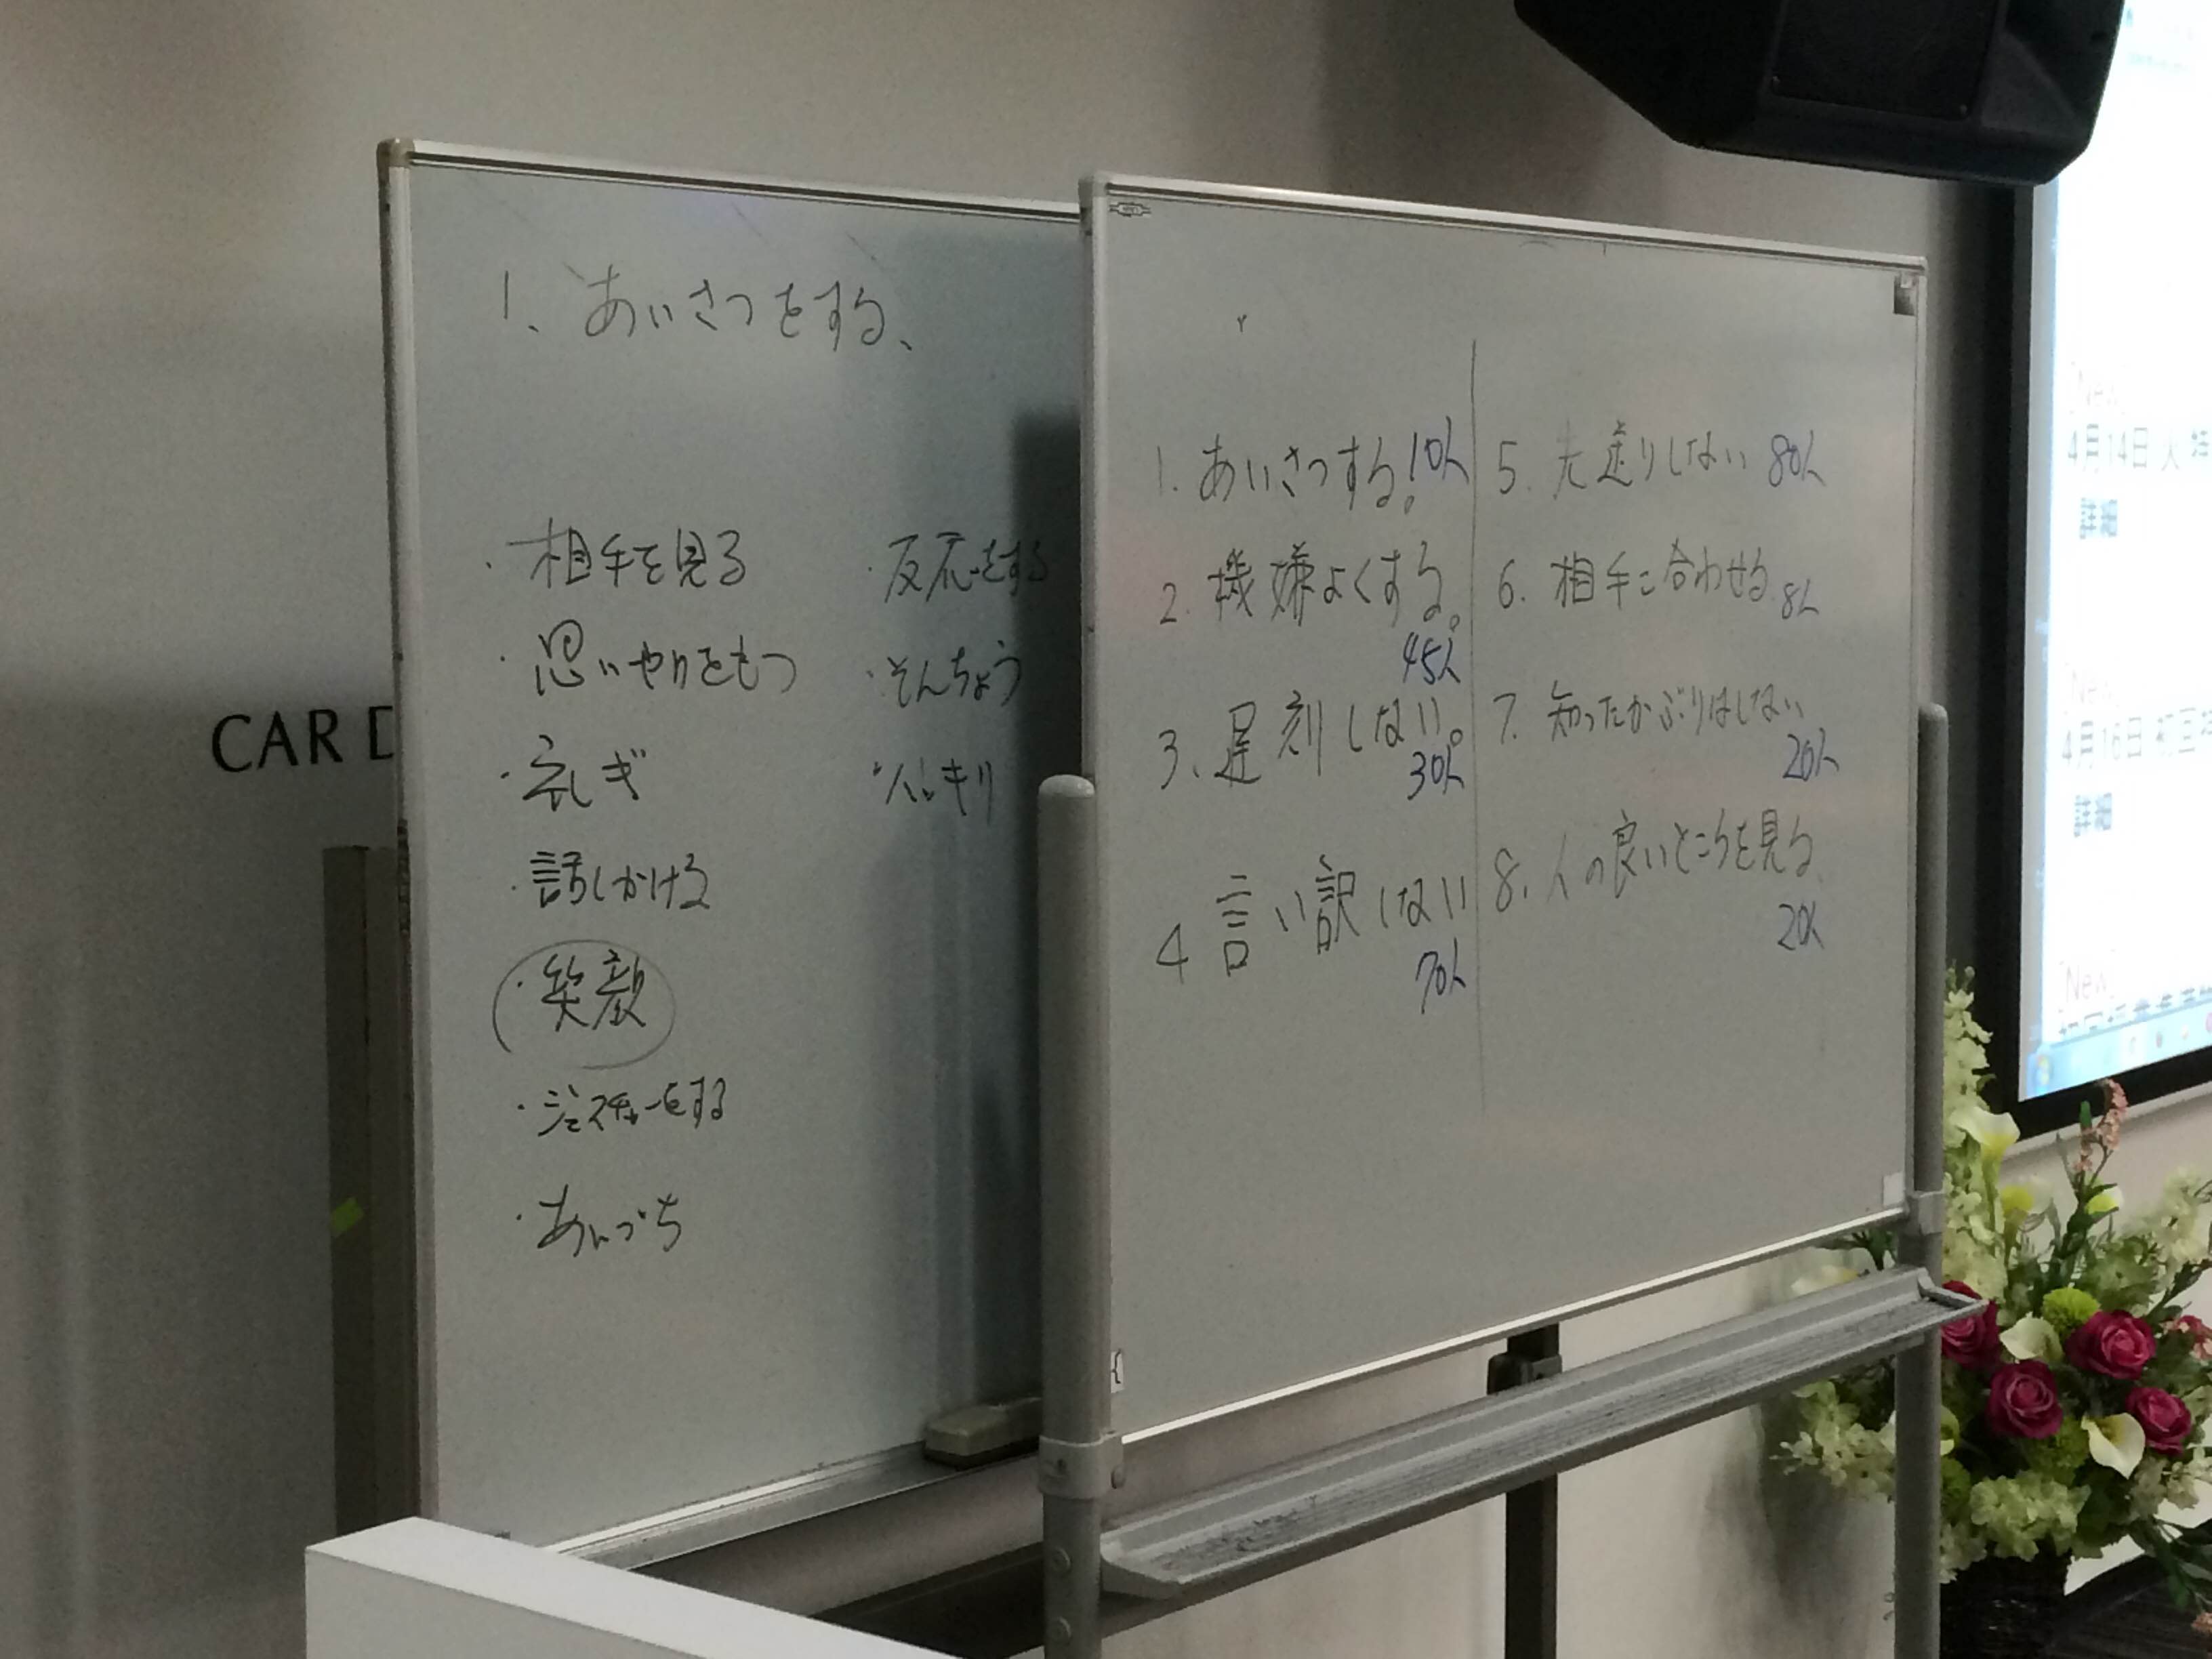 1、あいさつをする、
・相手を見る
・思いやりをもつ
・礼しぎ
・話しかける
・笑顔
・ジェスチャーをする
・あいづち
・反応をする
・そんちょう
・ハッキリ
CAR D
1. あいさつする。10人
2. 機嫌よくする。
45人
3、遅刻しない。
30人
4 言い訳しない
70人
5. 先送りしない 80人
6. 相手に合わせる 8人
7. 知ったかぶりはしない
20人
8. 人の良いところを見る
20人
New
4月14日
詳細
New
4月16日 初回
詳細
New